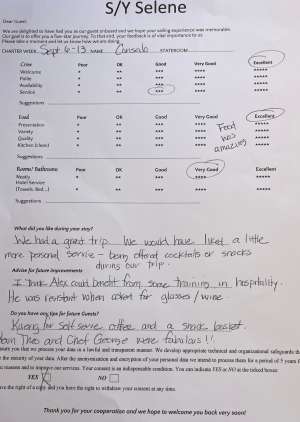 S/Y Selene
Dear Guest,
We are delighted to have had you as our guest onboard and we hope your sailing experience was memorable.
Our goal is to offer you a five-star journey. To that end, your feedback is of vital importance to us.
Please take a moment and let us know how we are doing.
CHARTER WEEK Sept 6-13 NAME STATEROOM
Crew Poor OK Good Very Good Excellent
Welcome * ** *** **** *****
Polite * ** *** **** *****
Availability * ** *** **** *****
Service * ** *** **** *****
Suggestions
Food Poor OK Good Very Good Excellent
Presentation * ** *** **** *****
Variety * ** *** **** *****
Quality * ** *** **** *****
Kitchen Island * ** *** **** *****
Food was amazing
Suggestions
Rooms/ Bathrooms Poor OK Good Very Good Excellent
Neatly * ** *** **** *****
Hotel Service
(Towels, Bed...) * ** *** **** *****
Suggestions
What did you like during your stay?
We had a great trip. We would have liked a little
more personal service - being offered cocktails or snacks
during our trip.
Advise for future improvements
I think Alex could benefit from some training in hospitality.
He was resistant when asked for glasses/wine.
Do you have any tips for future Guests?
Keurig for self serve coffee and a snack basket.
Theo and Chef George were fabulous!!
sure you that we process your data in a lawful and transparent manner. We develop appropriate technical and organizational safeguards
the security of your data. After the anonymization and encryption of your personal data we intend to process them for a period of 5 years
reasons and to improve our services. Your consent is an indispensable condition. You can indicate YES or NO at the indexed boxes:
YES NO
have the right of a copy and you have the right to withdraw your consent at any time.
Thank you for your cooperation and we hope to welcome you back very soon!